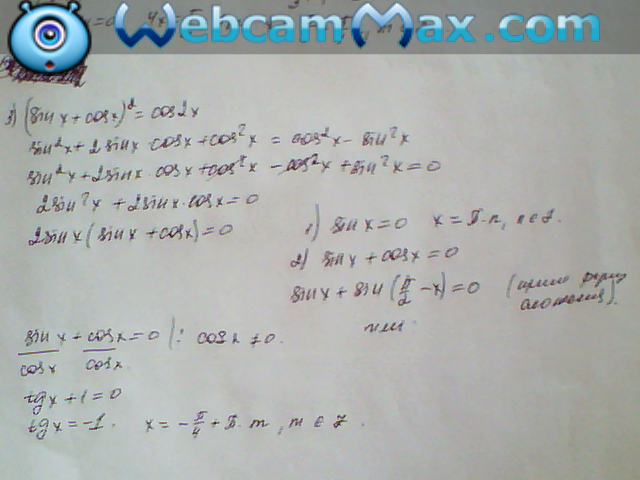 WebcamMax.com
3) (sin x + cos x)² = cos 2x
sin²x + 2 sin x · cos x + cos²x = cos²x − sin²x
sin²x + 2 sin x · cos x + cos²x − cos²x + sin²x = 0
2 sin²x + 2 sin x · cos x = 0
2 sin x (sin x + cos x) = 0
1) sin x = 0 x = π·n, n ∈ Z.
2) sin x + cos x = 0
sin x + sin (π/2 − x) = 0
или
sin x/cos x + cos x/cos x = 0 |: cos x ≠ 0.
tg x + 1 = 0
tg x = −1. x = −π/4 + π·m, m ∈ Z.